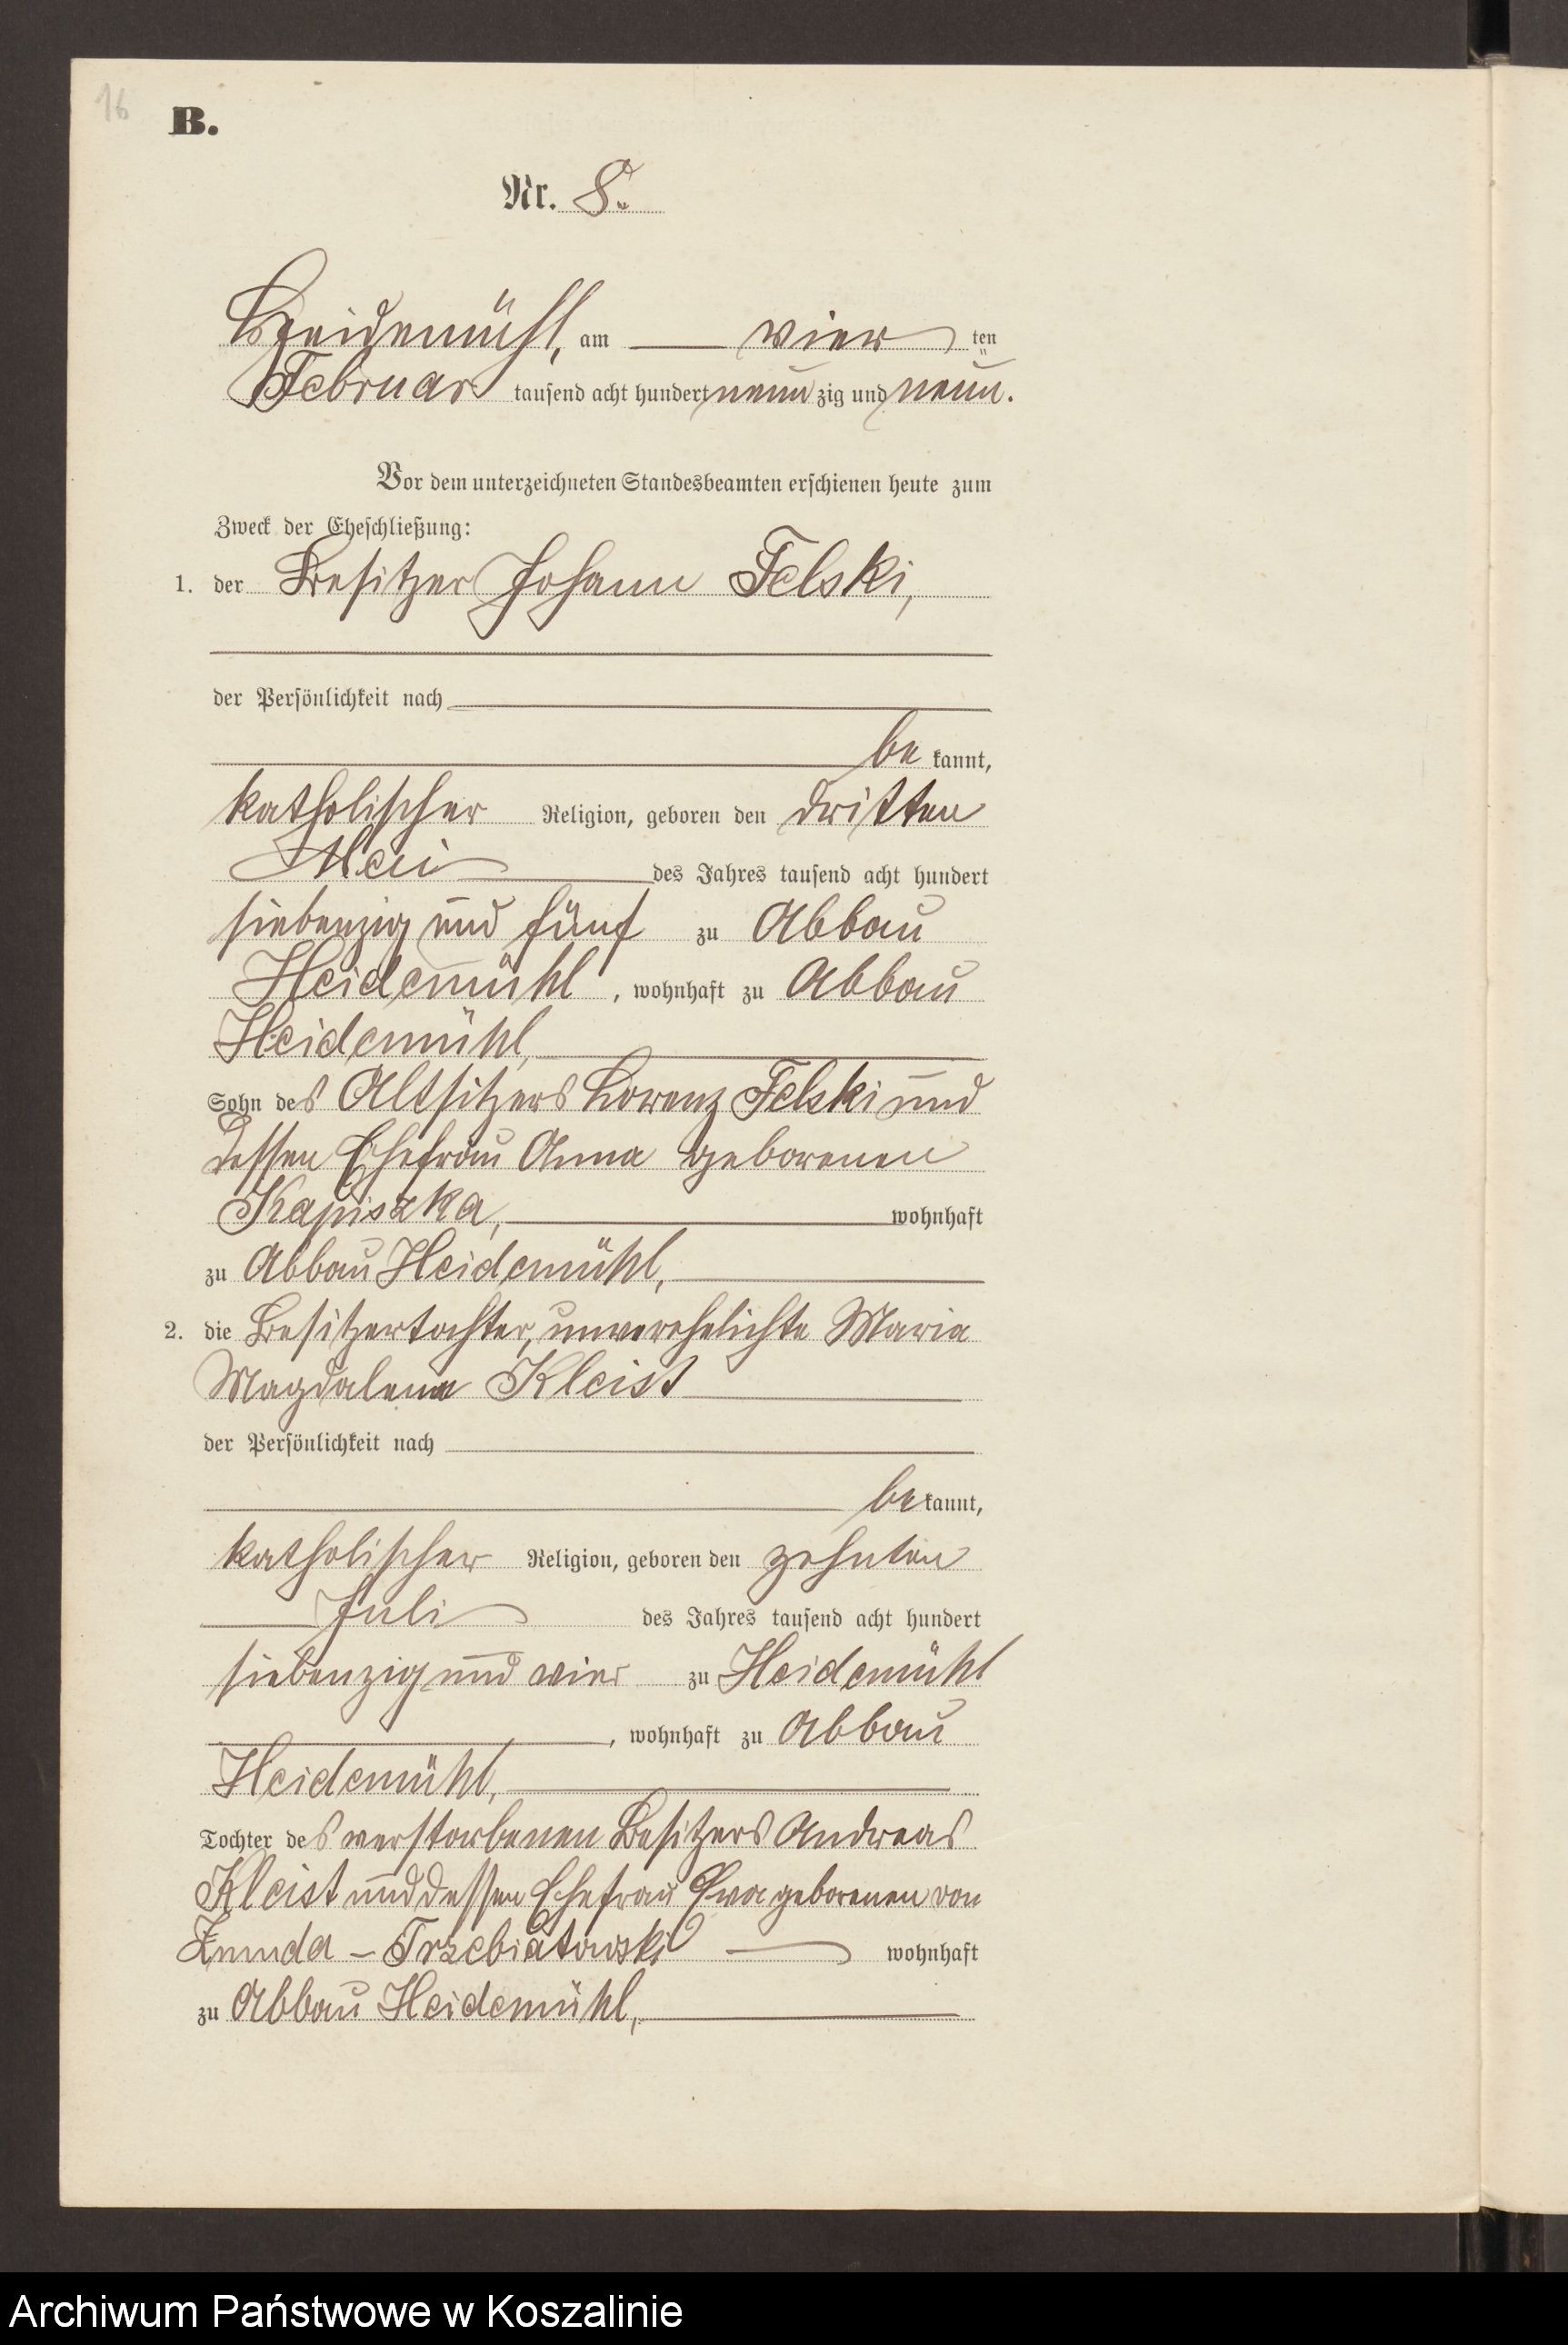 16
B.
Nr. 8.
Heidemühl, am vier ten
Februar tausend acht hundert neun zig und neun.
Vor dem unterzeichneten Standesbeamten erschienen heute zum
Zweck der Eheschließung:
1. der Besitzer Johann Felski,
der Persönlichkeit nach
be kannt,
katholischer Religion, geboren den dritten
Mai des Jahres tausend acht hundert
siebenzig und fünf zu Abbau
Heidemühl, wohnhaft zu Abbau
Heidemühl,
Sohn des Altsitzers Lorenz Felski und
dessen Ehefrau Anna geborenen
Kapiszka, wohnhaft
zu Abbau Heidemühl,
2. die Besitzertochter, unverehelichte Maria
Magdalena Kleist
der Persönlichkeit nach
be kannt,
katholischer Religion, geboren den zehnten
Juli des Jahres tausend acht hundert
siebenzig und vier zu Heidemühl
, wohnhaft zu Abbau
Heidemühl,
Tochter des verstorbenen Besitzers Andreas
Kleist und dessen Ehefrau Eva geborenen von
Zmuda - Trzebiatowski wohnhaft
zu Abbau Heidemühl,
Archiwum Państwowe w Koszalinie